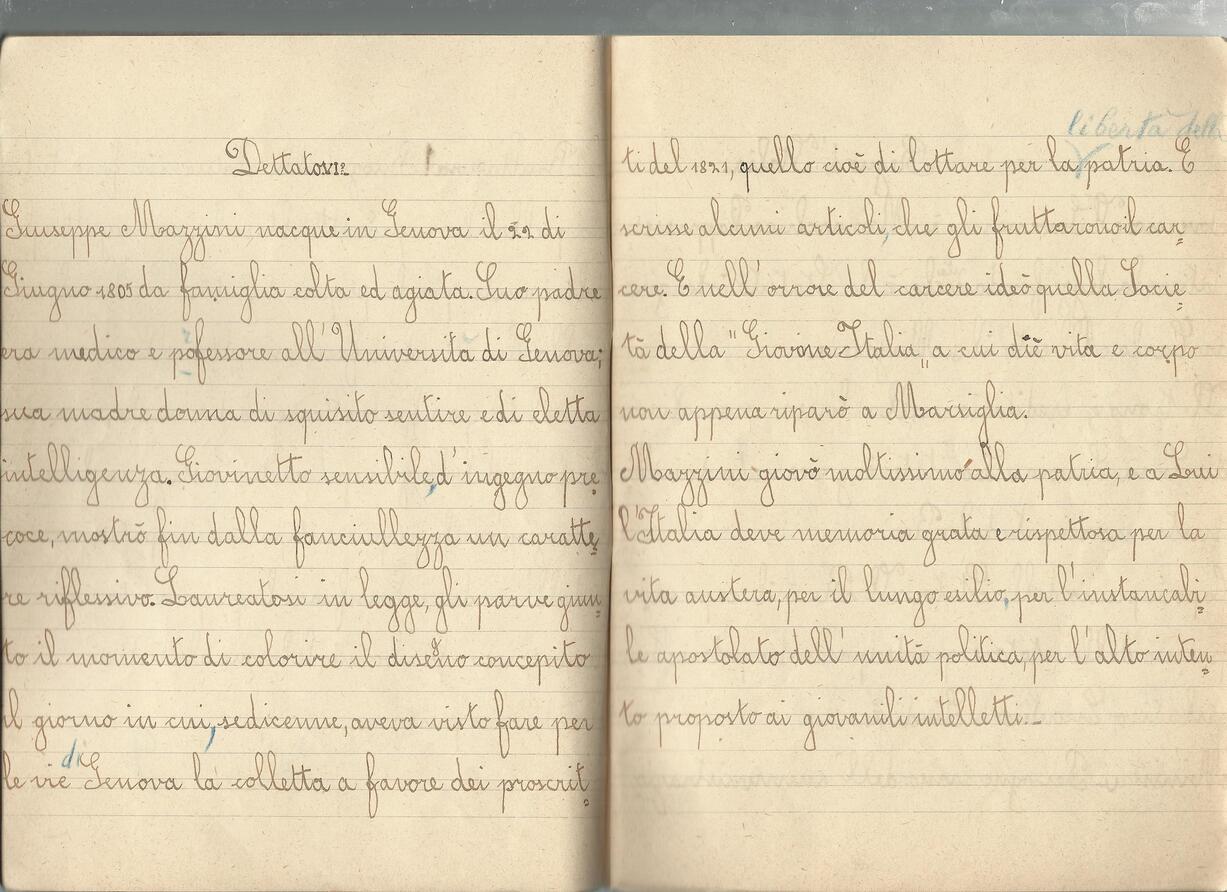 Dettato VI:
Giuseppe Mazzini nacque in Genova il 22 di
Giugno 1805 da famiglia colta ed agiata. Suo padre
era medico e pofessore all'Università di Genova;
sua madre donna di squisito sentire e di eletta
intelligenza. Giovinetto sensibile, d'ingegno pre=
coce, mostrò fin dalla fanciullezza un caratte=
re riflessivo. Laureatosi in legge, gli parve giun=
to il momento di colorire il disegno concepito
il giorno in cui, sedicenne, aveva visto fare per
di
le vie Genova la colletta a favore dei proscrit=
libertà della
ti del 1821, quello cioè di lottare per la patria. E
scrisse alcuni articoli, che gli fruttarono il car=
cere. E nell'orrore del carcere ideò quella Socie=
tà della "Giovone Italia" a cui diè vita e corpo
non appena riparò a Marsiglia.
Mazzini giovò moltissimo alla patria, e a Lui
l'Italia deve memoria grata e rispettosa per la
vita austera, per il lungo esilio, per l'instancabi=
le apostolato dell'unità politica, per l'alto inten=
to proposto ai giovanili intelletti._